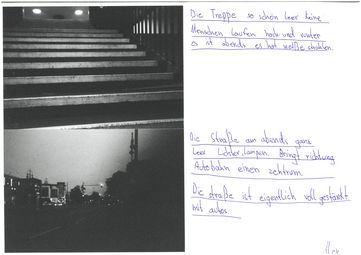 Die Treppe so schön leer keine
Menschen laufen hoch und runter
es ist abends es hat weiße strahlen.
Die Straße am abends ganz
leer Lichter, lampen. Bringt richtung
Autobahn einen zentrum.
Die straße ist eigentlich voll gestopft
mit autos.